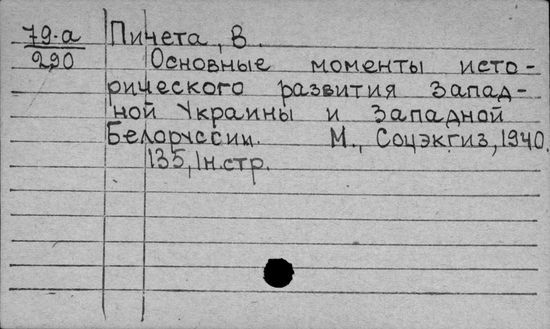 79-а
290
Пичета, В.
Основные моменты исто-
рического развития Запад-
ной Украины и Западной
Белоруссии. М., Соцэкгиз, 1940.
135, 1н.стр.